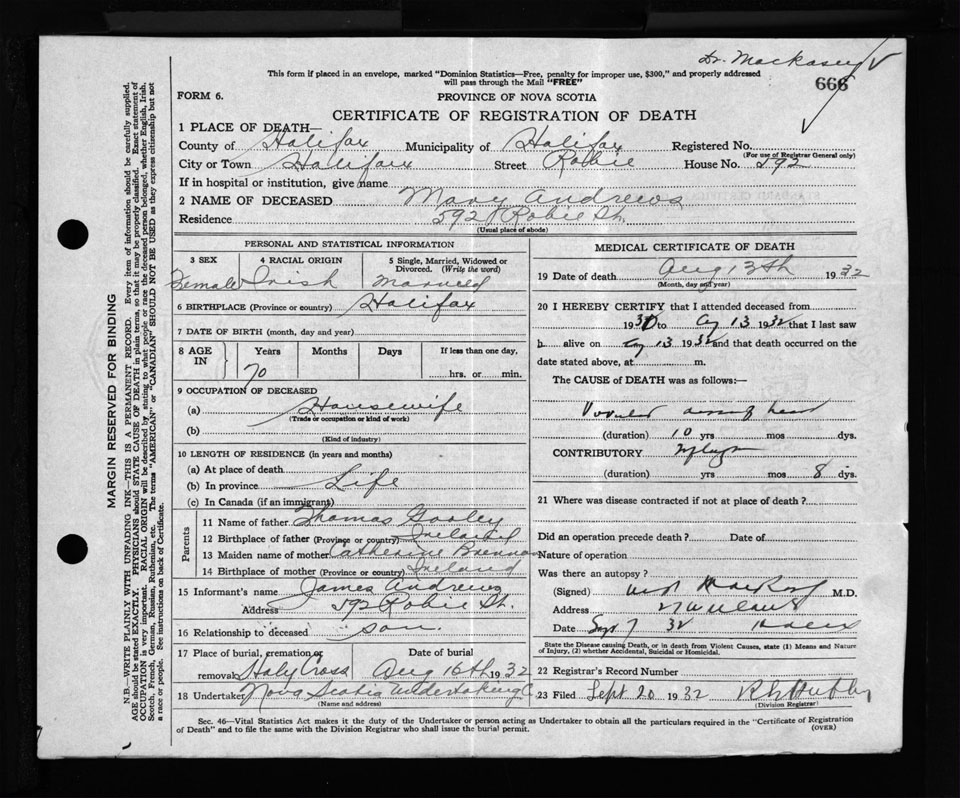 Dr. Mackasey
This form if placed in an envelope, marked "Dominion Statistics—Free, penalty for improper use, $300," and properly addressed
will pass through the Mail "FREE"
666
FORM 6.
PROVINCE OF NOVA SCOTIA
CERTIFICATE OF REGISTRATION OF DEATH
1 PLACE OF DEATH—
County of Halifax Municipality of Halifax Registered No.
(For use of Registrar General only)
City or Town Halifax Street Robie House No. 592
If in hospital or institution, give name
2 NAME OF DECEASED Mary Andrews
Residence 592 Robie St.
(Usual place of abode)
PERSONAL AND STATISTICAL INFORMATION
3 SEX 4 RACIAL ORIGIN 5 Single, Married, Widowed or
Divorced. (Write the word)
Female Irish Married
6 BIRTHPLACE (Province or country) Halifax
7 DATE OF BIRTH (month, day and year)
8 AGE IN Years Months Days If less than one day,
70 hrs. or min.
9 OCCUPATION OF DECEASED
(a) Housewife
(Trade or occupation or kind of work)
(b)
(Kind of industry)
10 LENGTH OF RESIDENCE (in years and months)
(a) At place of death
(b) In province Life
(c) In Canada (if an immigrant)
Parents
11 Name of father Thomas
12 Birthplace of father (Province or country) Ireland
13 Maiden name of mother Catherine Brennan
14 Birthplace of mother (Province or country) Ireland
15 Informant's name James Andrews
Address 592 Robie St.
16 Relationship to deceased son.
17 Place of burial, cremation or Date of burial
removal Holy Cross Aug 16th 1932
18 Undertaker Nova Scotia Undertaking C
(Name and address)
MEDICAL CERTIFICATE OF DEATH
19 Date of death Aug 13th 1932
(Month, day and year)
20 I HEREBY CERTIFY that I attended deceased from
1930 to Aug 13 1932 that I last saw
h alive on Aug 13 1932 and that death occurred on the
date stated above, at m.
The CAUSE of DEATH was as follows:—
heart
(duration) 10 yrs mos dys.
CONTRIBUTORY
(duration) yrs mos 8 dys.
21 Where was disease contracted if not at place of death?
Did an operation precede death? Date of
Nature of operation
Was there an autopsy?
(Signed) M.D.
Address
Date Sept 7 32
State the Disease causing Death, or in death from Violent Causes, state (1) Means and Nature
of Injury, (2) whether Accidental, Suicidal or Homicidal.
22 Registrar's Record Number
23 Filed Sept 20 1932
(Division Registrar)
Sec. 46—Vital Statistics Act makes it the duty of the Undertaker or person acting as Undertaker to obtain all the particulars required in the "Certificate of Registration
of Death" and to file the same with the Division Registrar who shall issue the burial permit.
(OVER)
MARGIN RESERVED FOR BINDING
N.B.—WRITE PLAINLY WITH UNFADING INK—THIS IS A PERMANENT RECORD. Every item of information should be carefully supplied.
AGE should be stated EXACTLY. PHYSICIANS should STATE CAUSE OF DEATH in plain terms, so that it may be properly classified. Exact statement of
OCCUPATION is very important. RACIAL ORIGIN will be described by stating to what people or race the deceased person belonged, whether English, Irish,
Scotch, French, German, Russian, Ruthenian, etc. The terms "AMERICAN" or "CANADIAN" SHOULD NOT BE USED as they express citizenship but not
a race or people. See instructions on back of Certificate.